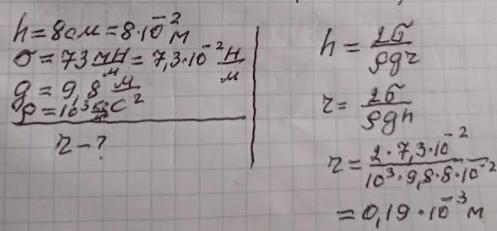 h=8см=8·10⁻² м
σ=73 мН/м=7,3·10⁻² Н/м
g=9,8 м/с²
ρ=10³
r-?
h = 2σ/ρgr
r = 2σ/ρgh
r = 2·7,3·10⁻²/10³·9,8·8·10⁻²
= 0,19·10⁻³ м